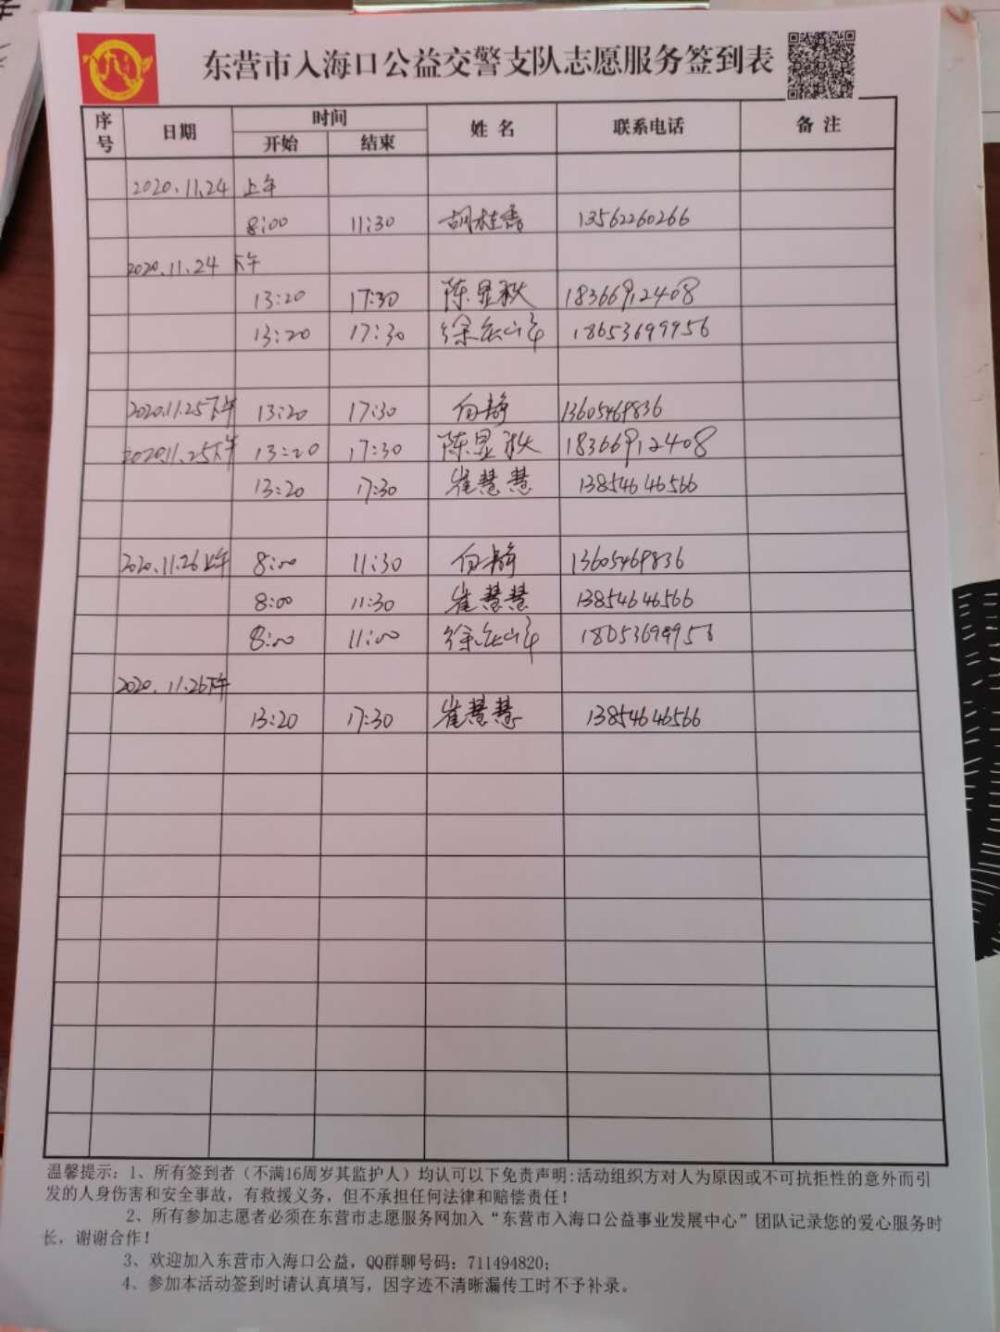 东营市入海口公益交警支队志愿服务签到表
序号 日期 时间 姓 名 联系电话 备 注
开始 结束
2020.11.24 上午
8:00 11:30 胡桂香 13562260266
2020.11.24 下午
13:20 17:30 陈显秋 18366912408
13:20 17:30 徐 18653699956
2020.11.25下午 13:20 17:30 白静 13605469836
2020.11.25下午 13:20 17:30 陈显秋 18366912408
13:20 17:30 崔慧慧 13854646566
2020.11.26上午 8:00 11:30 白静 13605469836
8:00 11:30 崔慧慧 13854646566
8:00 11:00 徐
2020.11.26下午
13:20 17:30 崔慧慧 13854646566
温馨提示：1、所有签到者（不满16周岁其监护人）均认可以下免责声明:活动组织方对人为原因或不可抗拒性的意外而引
发的人身伤害和安全事故，有救援义务，但不承担任何法律和赔偿责任！
2、所有参加志愿者必须在东营市志愿服务网加入“东营市入海口公益事业发展中心”团队记录您的爱心服务时
长，谢谢合作！
3、欢迎加入东营市入海口公益，QQ群聊号码：711494820；
4、参加本活动签到时请认真填写，因字迹不清晰漏传工时不予补录。